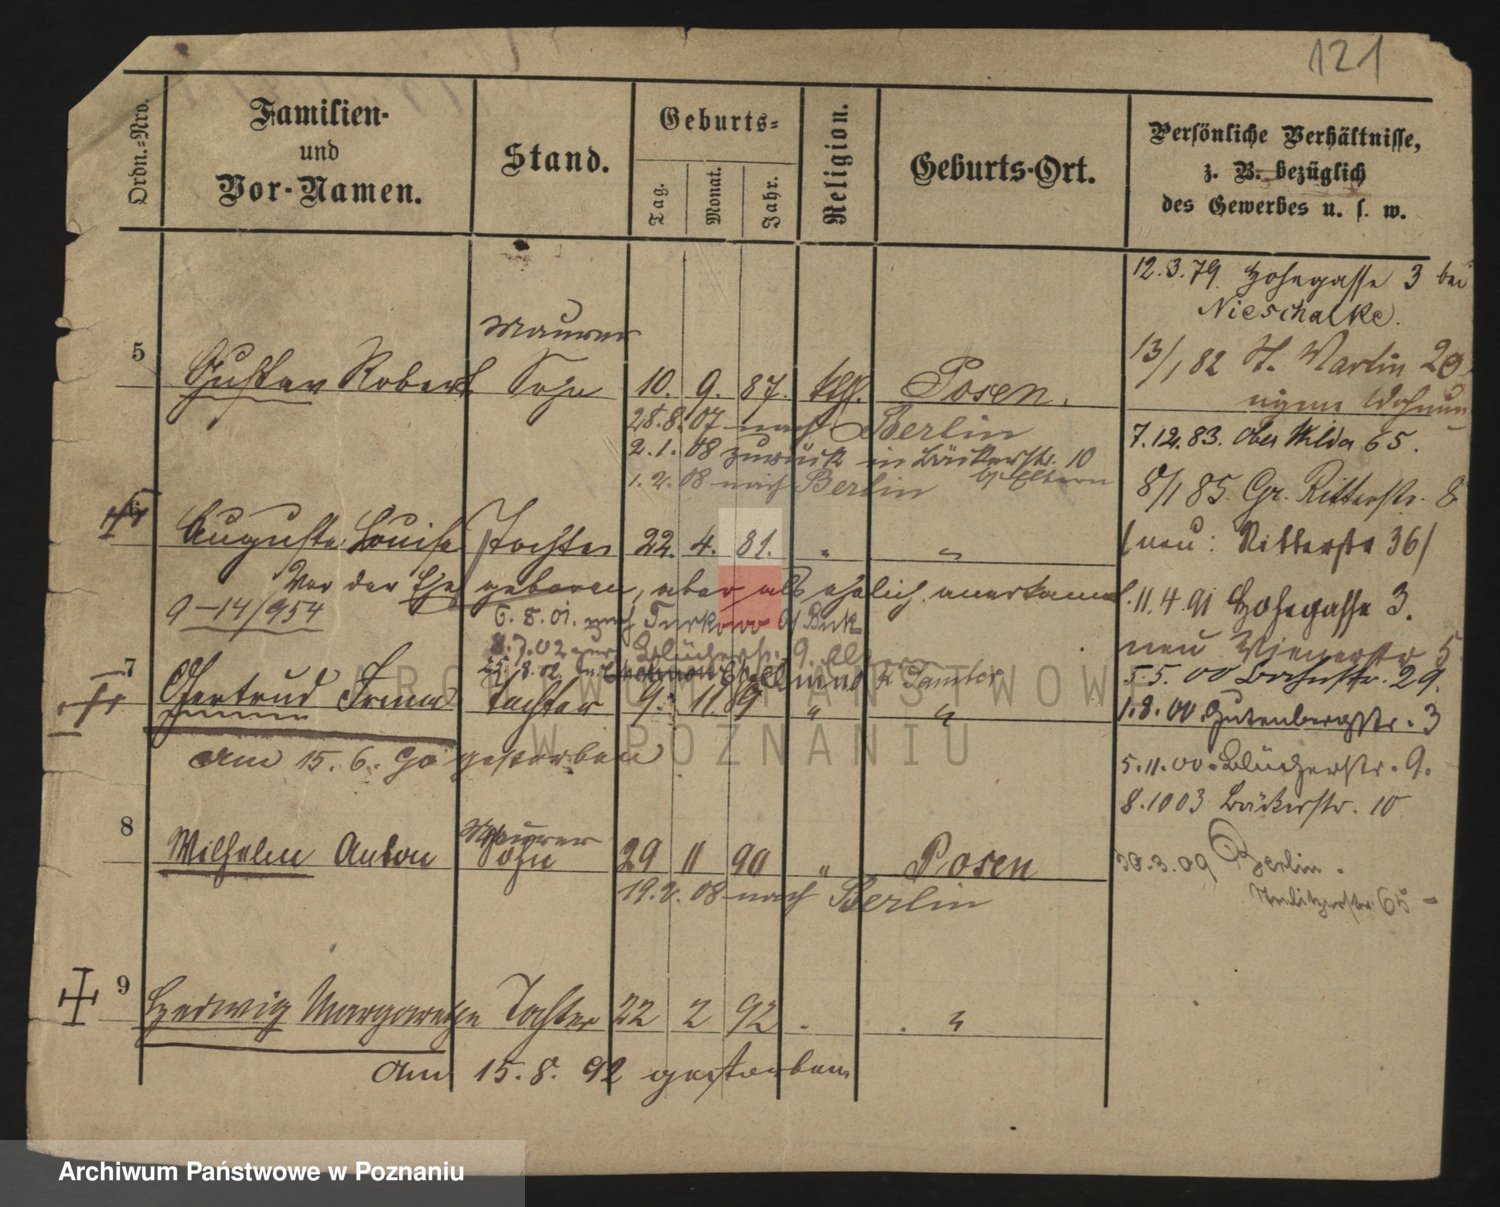 121
Ordn.-Nro.
Familien-
und
Vor-Namen.
Stand.
Geburts-
Tag.
Monat.
Jahr.
Religion.
Geburts-Ort.
Persönliche Verhältnisse,
z. B. bezüglich
des Gewerbes u. s. w.
12.3.79. Hohegasse 3 bei
Nieschalke.
13/1 82 St. Martin
7.12.83. Ober Wilda 65.
8/1 85. Gr. Ritterstr. 8
(neu: Ritterstr 36)
11.4.91 Hohegasse 3.
neu Wienerstr 5
5.5.00 Bahnstr. 29.
1.8.00. Gutenbergstr. 3
5.11.00. Blücherstr. 9.
8.10 03 Bäckerstr. 10
30.3.09 Berlin.
65
5 Gustav Robert Maurer Sohn 10. 9. 87. kth. Posen.
28.8.07 nach Berlin
2.1.08 zurück in Bäckerstr. 10
b/ Eltern
1.2.08 nach Berlin
6 Auguste Louise Tochter 22. 4. 81. " "
Vor der Ehe geboren, aber als ehelich anerkannt.
9-14/954
6.8.01. nach Turkowo b/ Buk
8.7.02 zur Blücherstr. 9. Eltern
7 Gertrud Irma Tochter 9. 11 89 " "
am 15.6.90 gestorben
8 Wilhelm Anton Maurer Sohn 29 11 90 " Posen
19.2.08 nach Berlin
9 Hedwig Margarethe Tochter 22 2 92 . . "
am 15.8.92 gestorben
ARCHIWUM PAŃSTWOWE
W POZNANIU
Archiwum Państwowe w Poznaniu